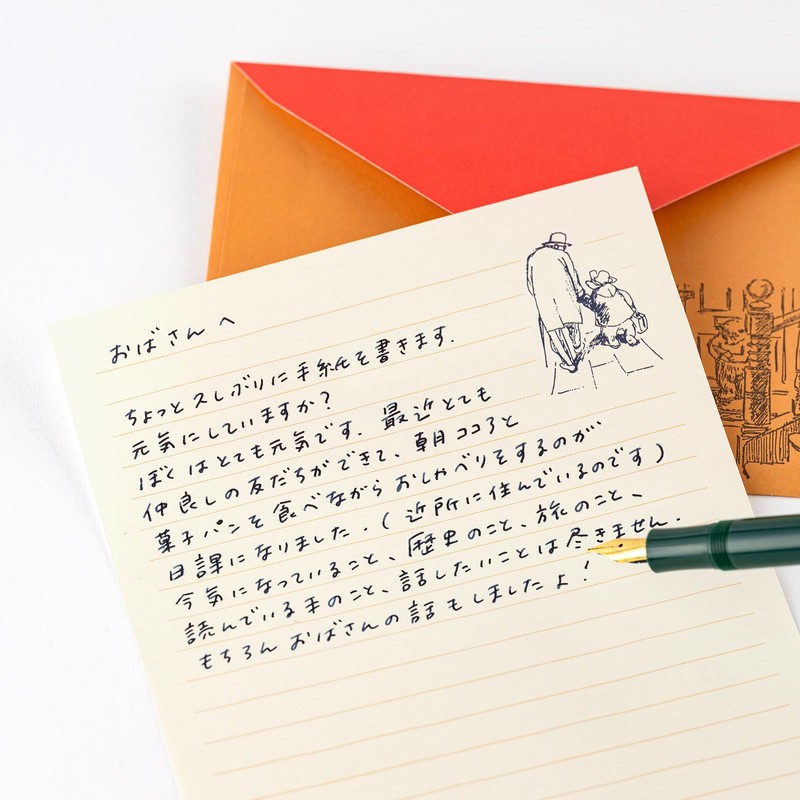 おばさんへ
ちょっと久しぶりに手紙を書きます.
元気にしていますか?
ぼくはとても元気です. 最近とても
仲良しの友だちができて、朝ココアと
菓子パンを食べながらおしゃべりをするのが
日課になりました.(近所に住んでいるのです)
今気になっていること、歴史のこと、旅のこと、
読んでいる本のこと、話したいことは尽きません.
もちろんおばさんの話もしましたよ!